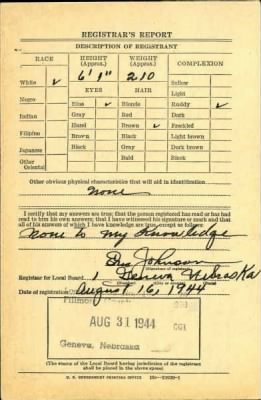 REGISTRAR'S REPORT
DESCRIPTION OF REGISTRANT
RACE HEIGHT (Approx.) WEIGHT (Approx.) COMPLEXION
White ✓ 6'1" 210 Sallow
EYES HAIR Light
Negro Blue ✓ Blonde Ruddy ✓
Gray Red Dark
Indian Hazel Brown ✓ Freckled
Filipino Brown Black Light brown
Japanese Black Gray Dark brown
Other Bald Black
Oriental
Other obvious physical characteristics that will aid in identification
None
I certify that my answers are true; that the person registered has read or has had
read to him his own answers; that I have witnessed his signature or mark and that
all of his answers of which I have knowledge are true, except as follows:
None to my Knowledge
Johnson
(Signature of registrar)
Registrar for Local Board 1 Geneva Nebraska
Date of registration August 16, 1944
AUG 31 1944
Geneva, Nebraska
(The stamp of the Local Board having jurisdiction of the registrant
shall be placed in the above space)
U. S. GOVERNMENT PRINTING OFFICE